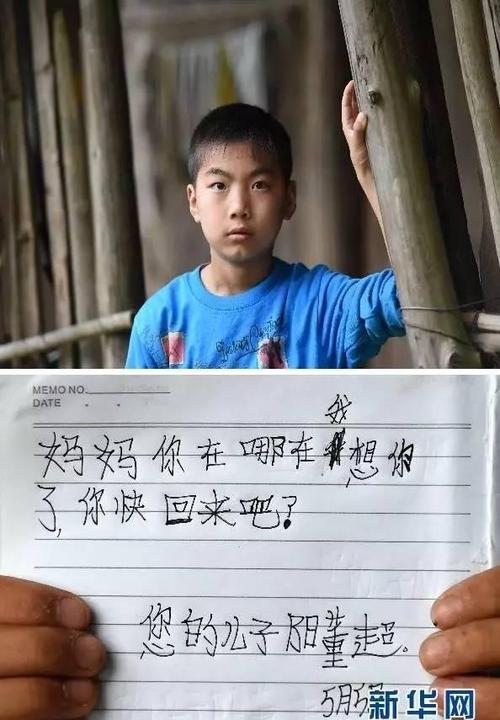 MEMO NO.
DATE . .
妈妈你在哪在我想你
了,你快回来吧?
您的儿子阳董超.
5月5日
新华网